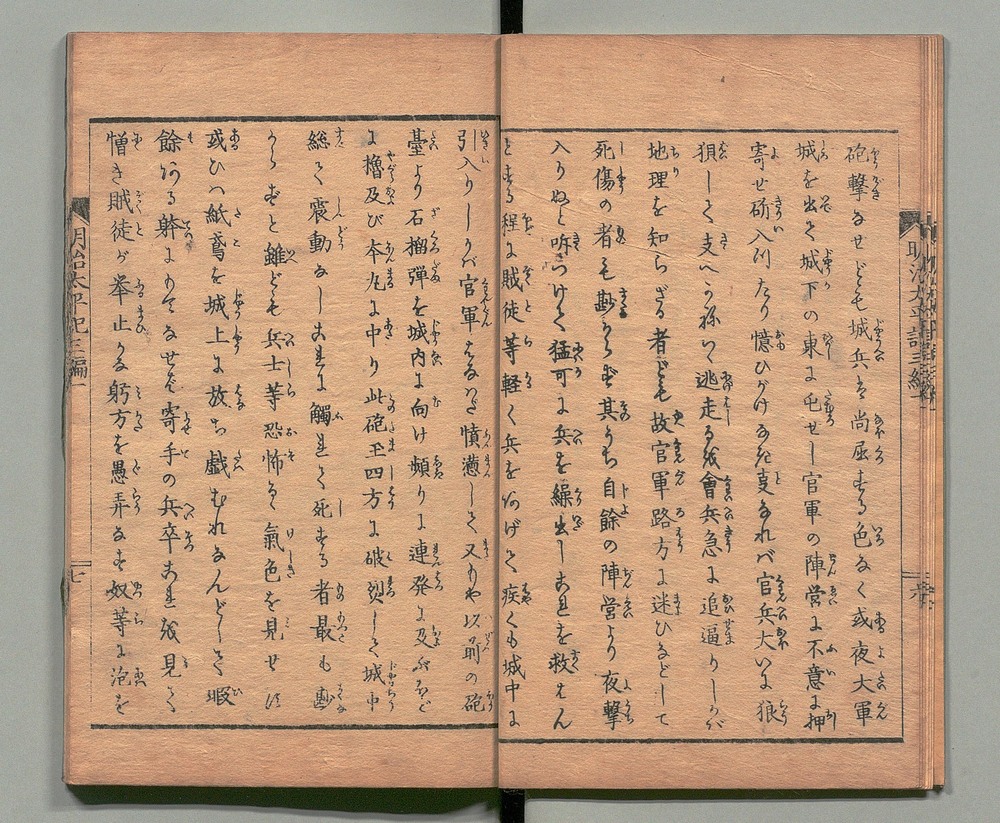 砲撃なせども城兵は尚屈する色なく或夜大軍
城を出て城下の東に屯せし官軍の陣営に不意に押
寄せ斫入りたり憶ひがけなき事なれバ官兵大いに狼
狽して支へかね逃走るを會兵急に追逼りしが
地理を知らざる者ども故官軍路方に迷ひなどして
死傷の者も尠からず其うち自餘の陣営より夜撃
入りぬと訴つけて猛可に兵を繰出しこれを救はん
とする程に賊徒等軽く兵をあげて疾くも城中に
引入りしかバ官軍はなハだ憤懣して又もや以前の砲
臺より石榴弾を城内に向け頻りに連発に及ぶほど
に櫓及び本丸に中り此砲玉四方に破烈して城中
総て震動なしこれに觸れて死する者最も尠
からずと雖ども兵士等恐怖る氣色を見せず
或ひハ紙鳶を城上に放ち戯むれなんどして暇
餘ある躰にもてなせば寄手の兵卒これを見て
憎き賊徒が挙止かな躬方を愚弄なす奴等に泡を
明治太平記三編
六
明治太平記三編一
七